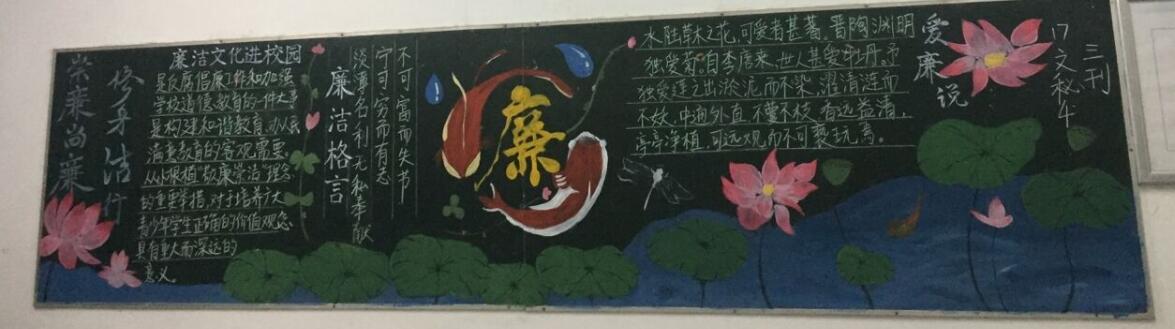 崇廉尚廉
修身洁行
廉洁文化进校园
是反腐倡廉工作和加强
学校道德教育的一件大事
是构建和谐教育,办人民
满意教育的客观需要
从小根植敬廉崇洁理念
的重要举措,对于培养广大
青少年学生正确的价值观念
具有重大而深远的
意义。
廉洁格言
淡薄名利无私奉献
宁可穷而有志
不可富而失节
廉
水陆草木之花,可爱者甚蕃,晋陶渊明
独爱菊,自李唐来,世人甚爱牡丹,予
独爱莲之出淤泥而不染,濯清涟而
不妖,中通外直,不蔓不枝,香远益清,
亭亭净植,可远观而不可亵玩焉。
爱廉说
17文秘4
三刊